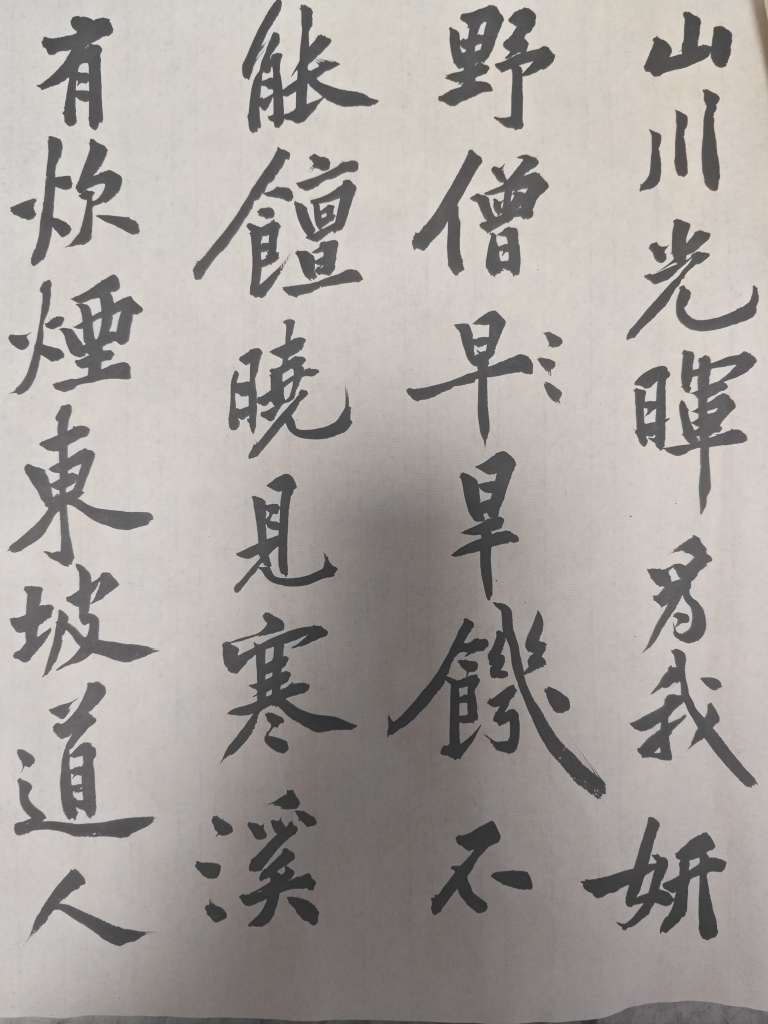 山川光暉爲我妍
野僧早⺀旱饑不
能饘曉見寒溪
有炊煙東坡道人